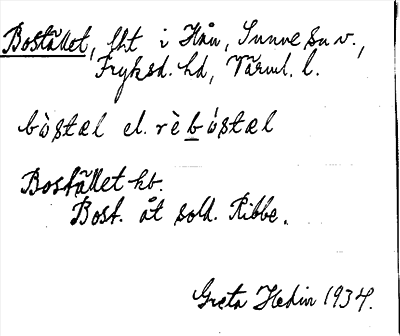 Bostället, lht i Hån, Sunne sn v.,
Fryksd. hd, Värml. l.
bòstæl el. rèbóstæl
Bostället kb.
Bost. åt sold. Ribbe.
Greta Hedin 1934.